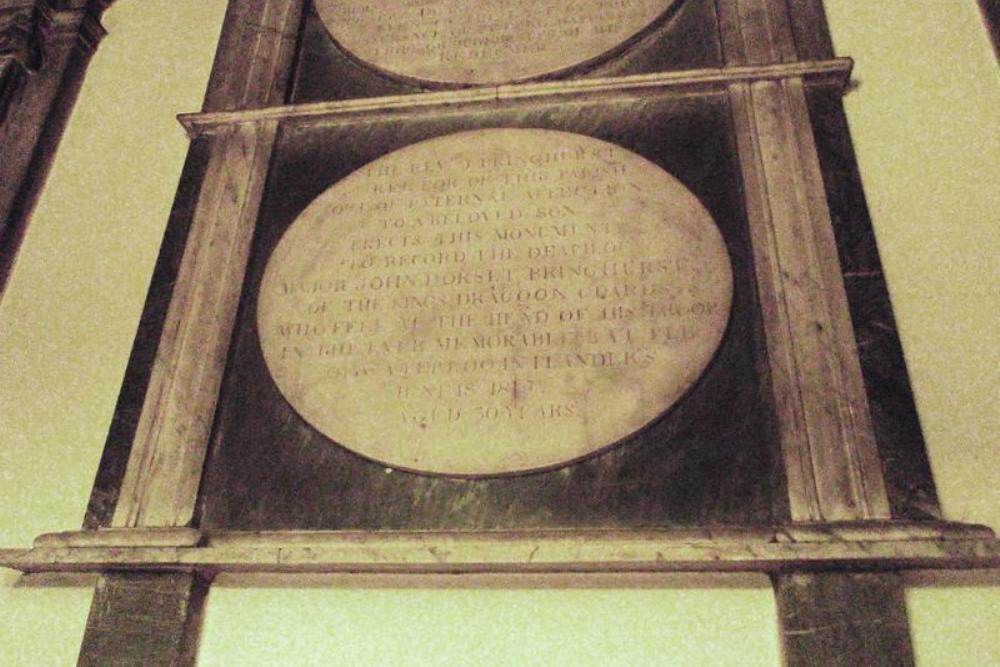 THE REV. J BRINGHURST
RECTOR OF THIS PARISH
OUT OF PATERNAL AFFECTION
TO A BELOVED SON
ERECTS THIS MONUMENT
TO RECORD THE DEATH OF
MAJOR JOHN DORSET BRINGHURST,
OF THE KINGS DRAGOON GUARDS
WHO FELL AT THE HEAD OF HIS TROOP
IN THE EVER MEMORABLE BATTLE
OF WATERLOO IN FLANDERS
JUNE 18 1815
AGED 30 YEARS